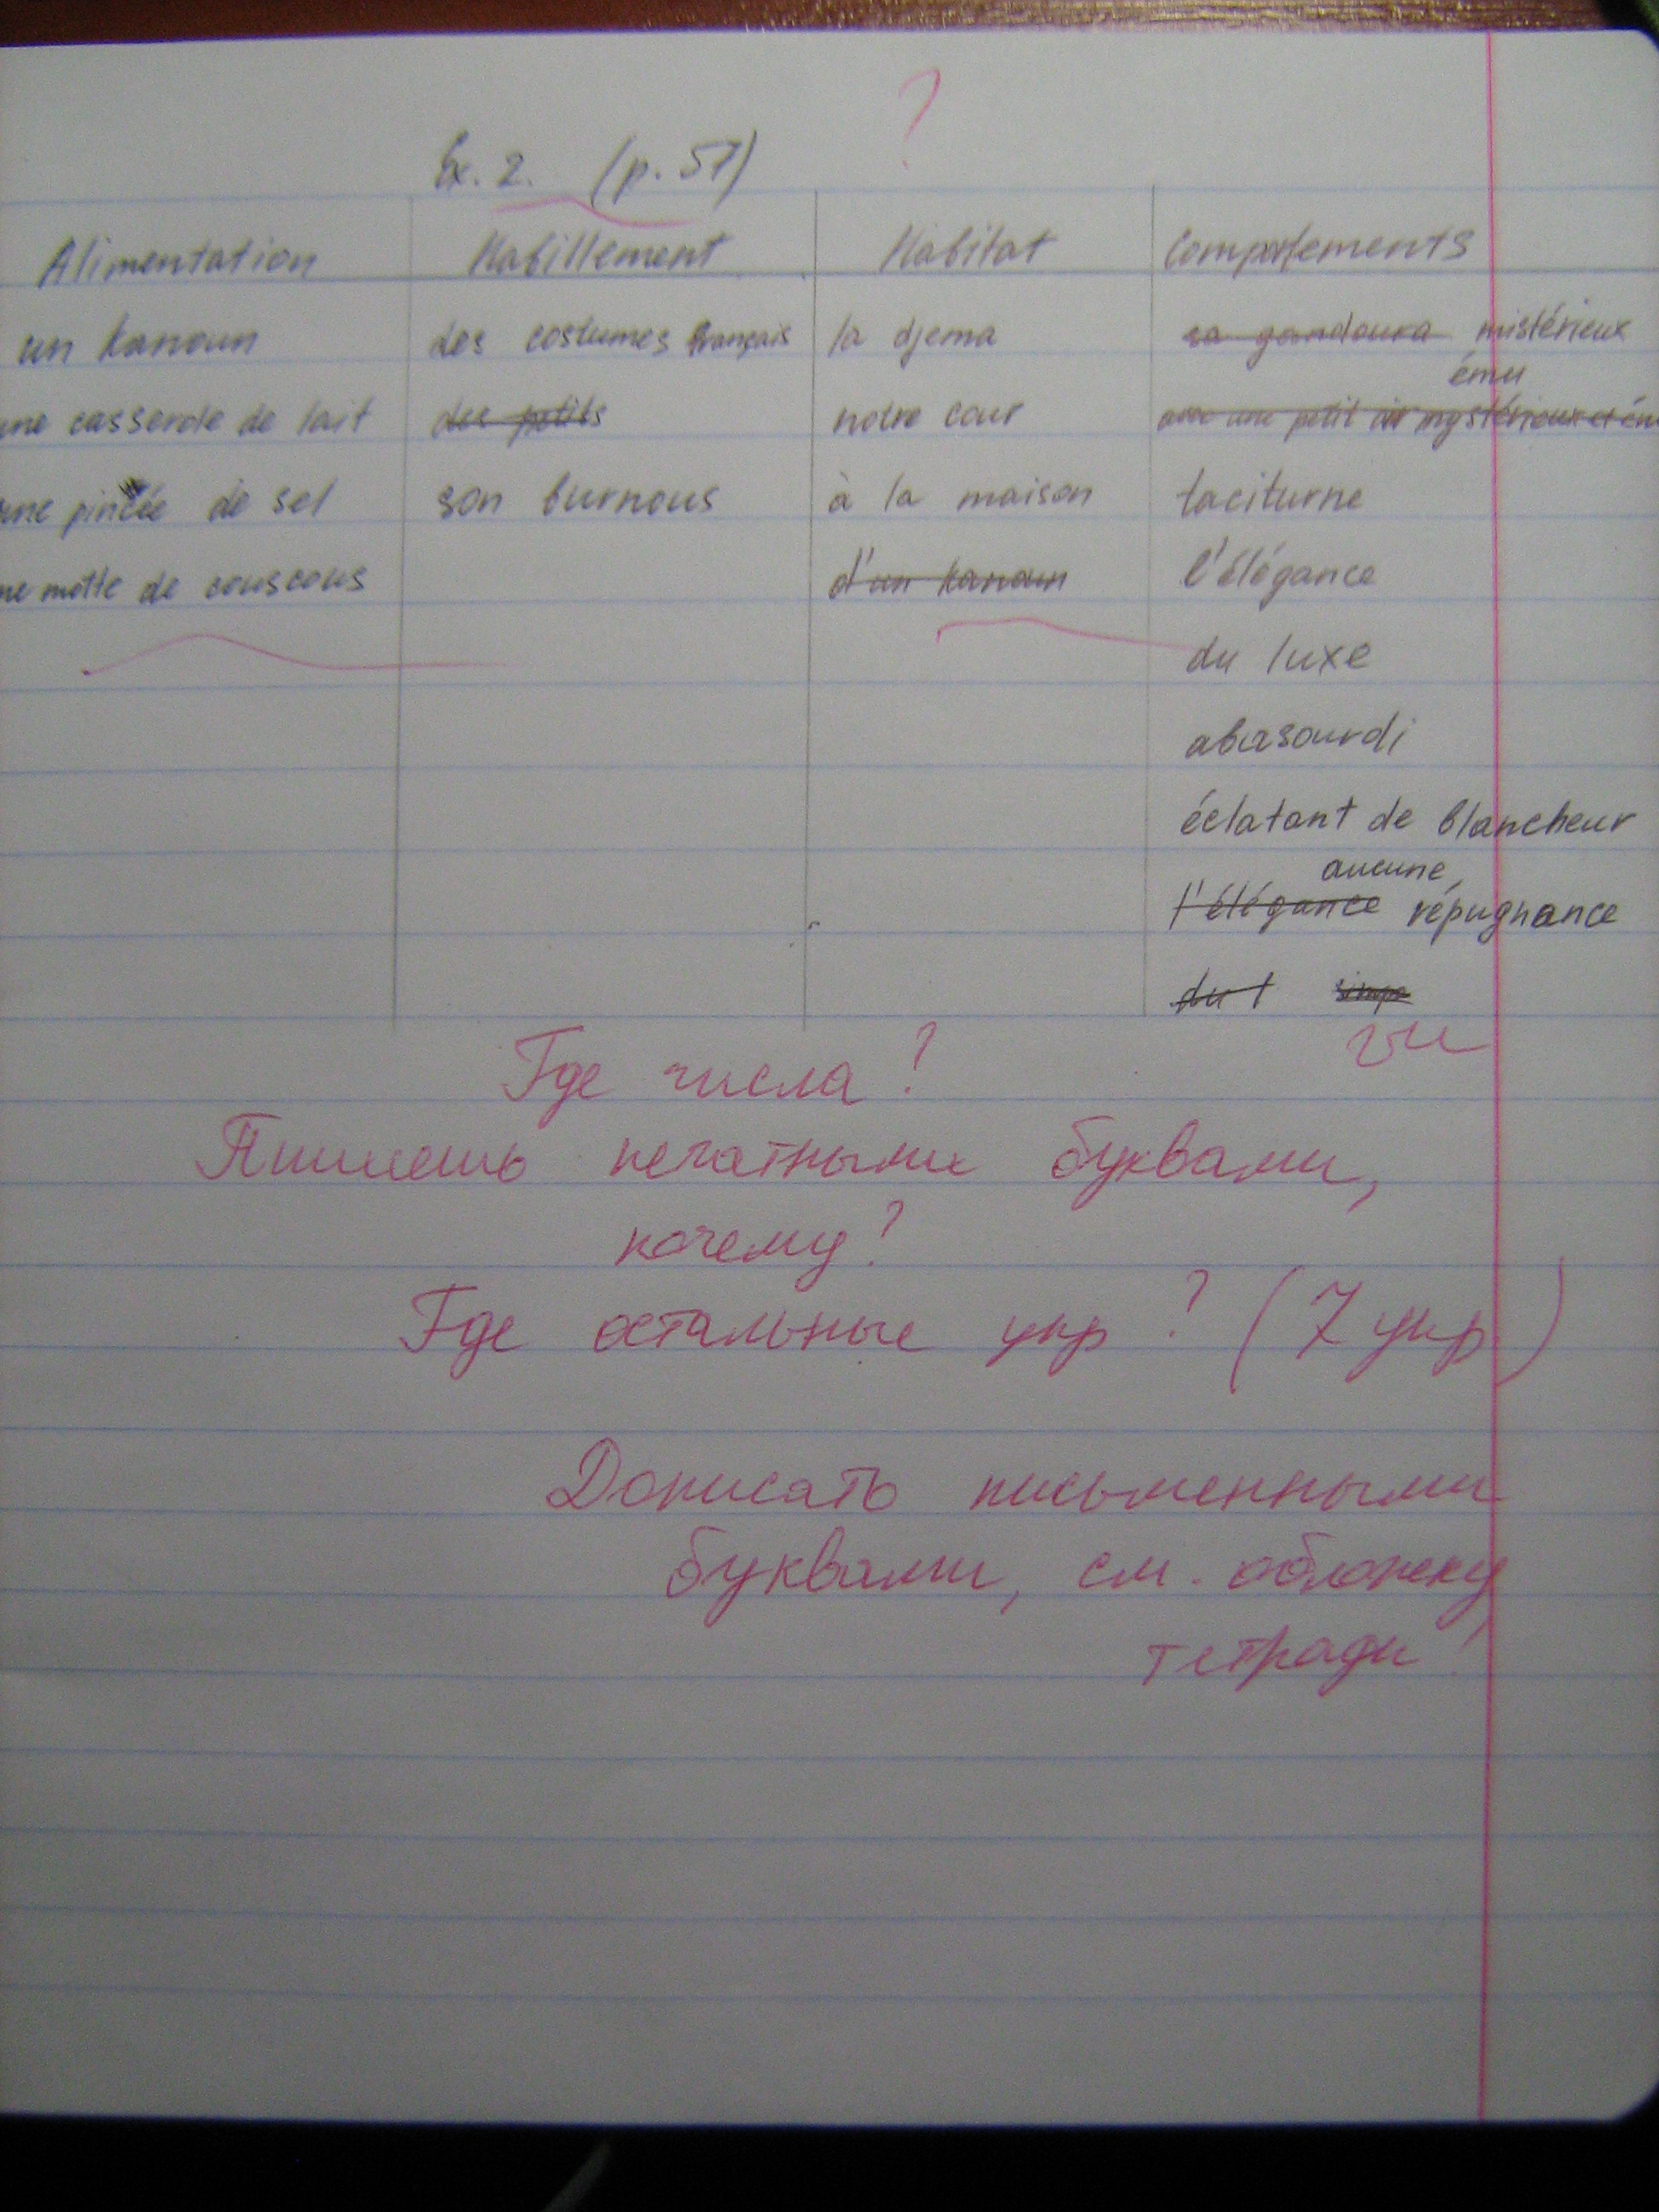 ?
Ex. 2. (p. 57)
Alimentation Habillement Habitat Comportements
un kanoun des costumes français la djema sa gandoura mistérieux
ému
une casserole de lait des petits notre cour avec une petit air mystérieux et ém
une pincée de sel son burnous à la maison taciturne
ne motte de couscous d'un kanoun l'élégance
du luxe
abasourdi
éclatant de blancheur
aucune
l'élégance répugnance
du l
Где числа?
Пишешь печатными буквами,
почему?
Где остальные упр? (7 упр)
Дописать письменными
буквами, см. обложку
тетради!